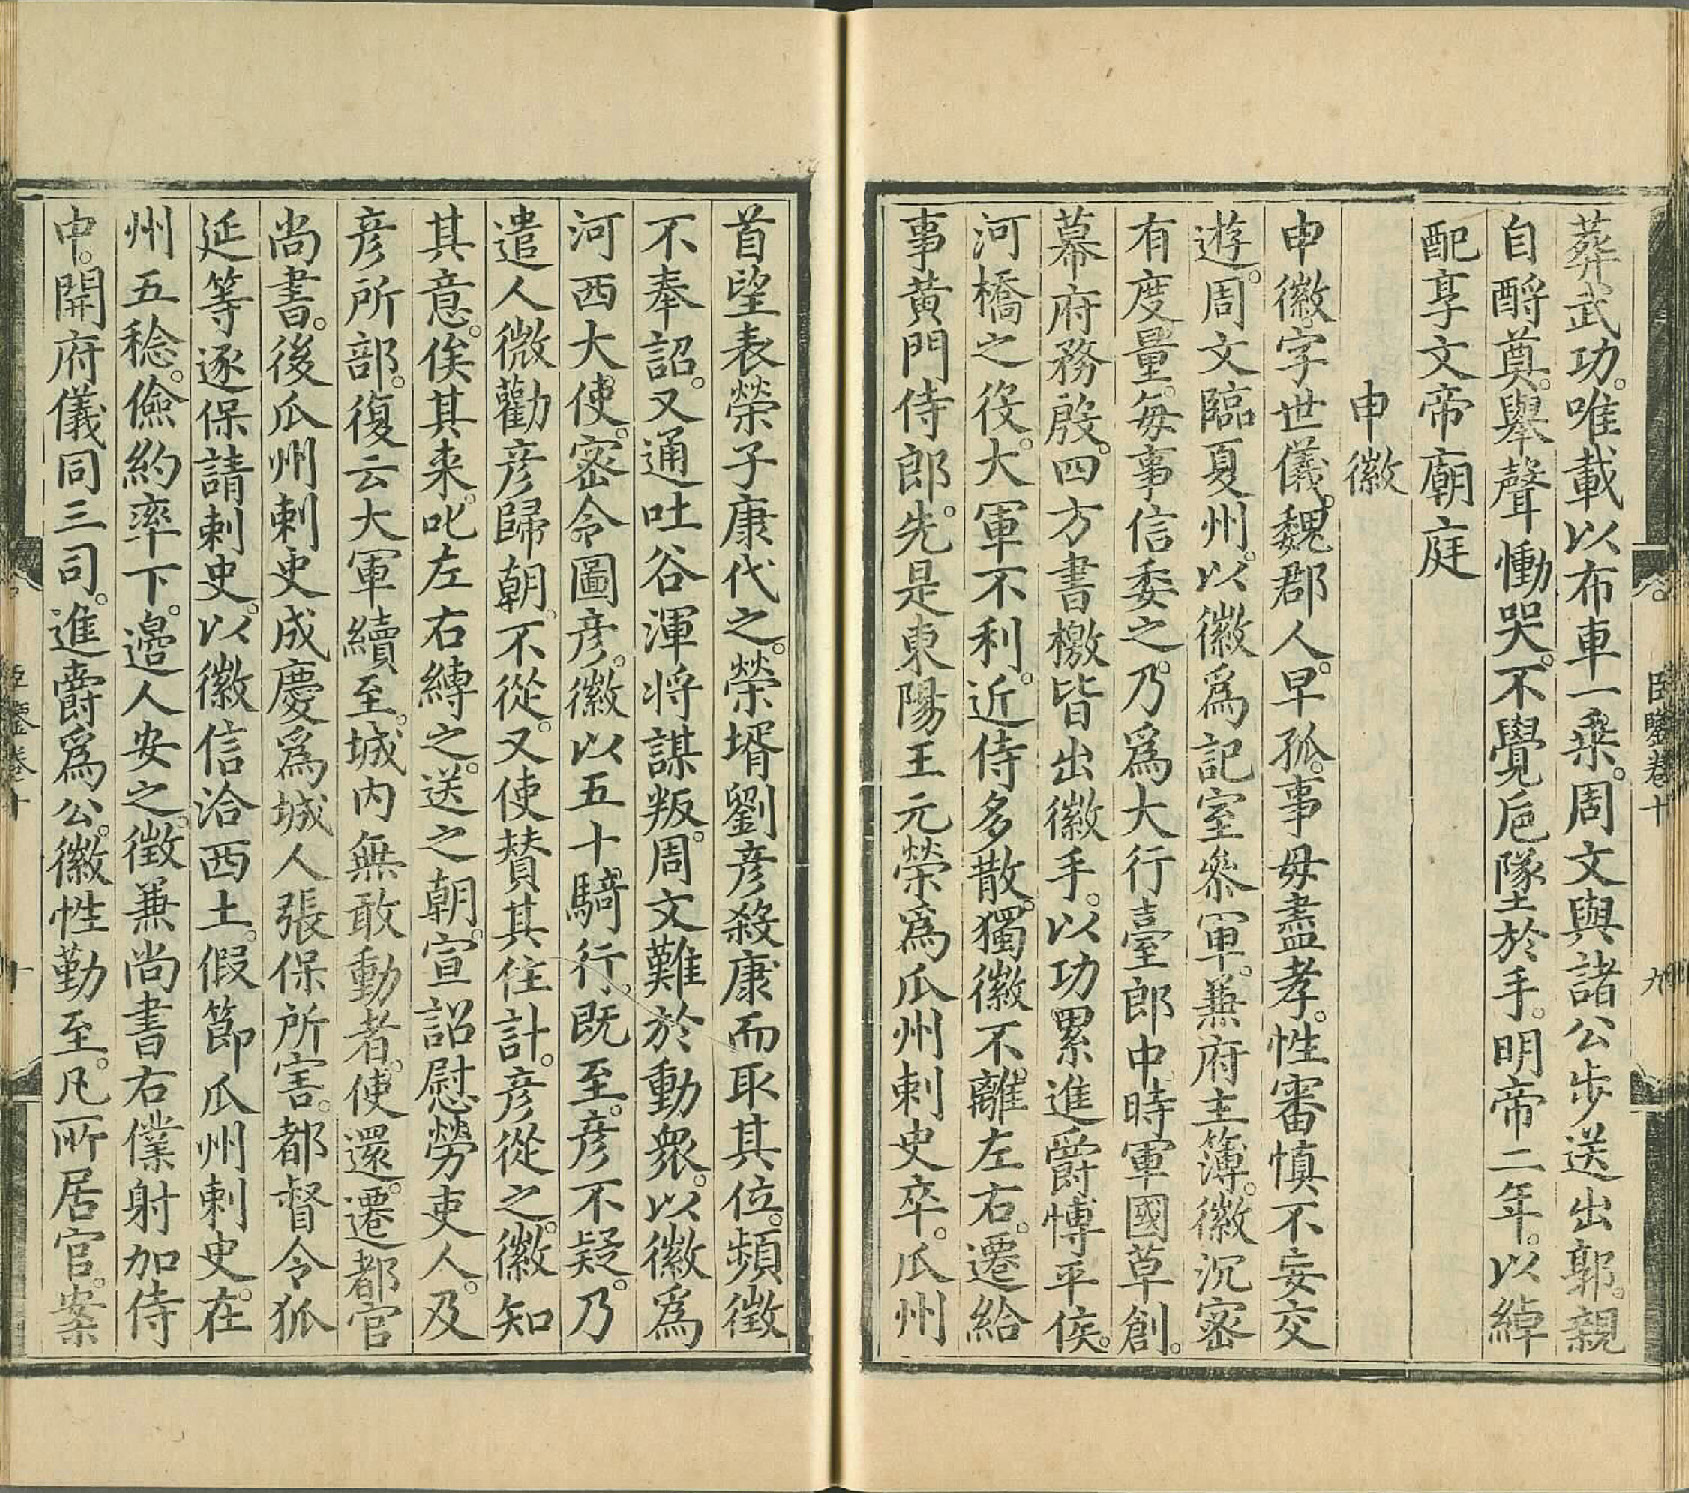 葬武功。唯載以布車一乗。周文與諸公步送出郭。親
自酹奠。舉聲慟哭。不覺巵墜於手。明帝二年。以綽
配享文帝廟庭
申徽
申徽。字世儀。魏郡人。早孤。事母盡孝。性審慎。不妄交
遊。周文臨夏州。以徽爲記室參軍。兼府主簿。徽沉密
有度量。每事信委之。乃爲大行臺郎中。時軍國草創。
幕府務殷。四方書檄皆出徽手。以功累進爵博平侯。
河橋之役。大軍不利。近侍多散。獨徽不離左右。遷給
事黃門侍郎。先是東陽王元榮爲瓜州刺史卒。瓜州
首望表榮子康代之。榮壻劉彦殺康而取其位。頻徵
不奉詔。又通吐谷渾將謀叛。周文難於動衆。以徽爲
河西大使。密令圖彦。徽以五十騎行。既至。彦不疑。乃
遣人微勸彦歸朝。不從。又使賛其住計。彦從之。徽知
其意。俟其来。叱左右縛之。送之朝。宣詔慰勞吏人。及
彦所部。復云大軍續至。城内無敢動者。使還。遷都官
尚書。後瓜州刺史成慶爲城人張保所害。都督令狐
延等逐保請刺史。以徽信洽西土。假節瓜州刺史。在
州五稔。儉約率下。邉人安之。徵兼尚書右僕射加侍
中。開府儀同三司。進爵爲公。徽性勤至。凡所居官。案
臣鑒卷十
九
臣鑒卷十
十